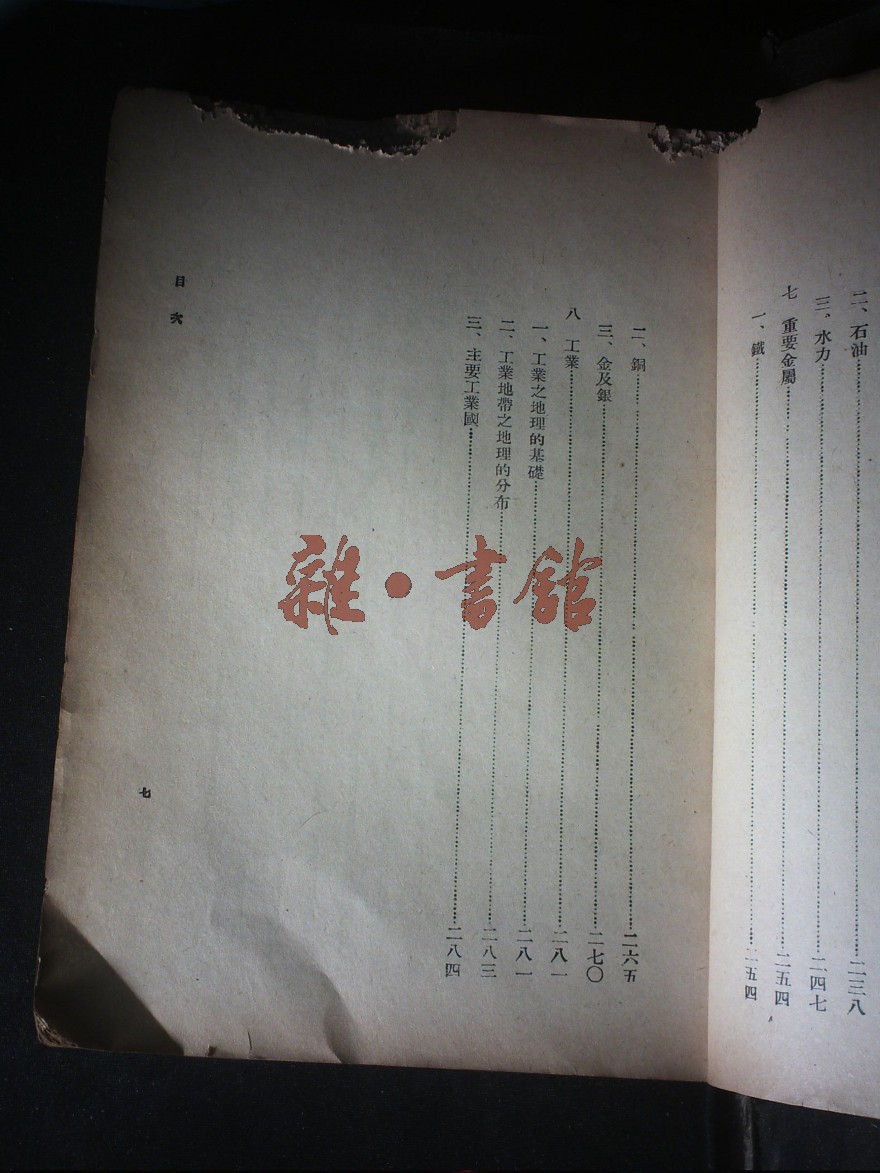 二、石油……二三八
三、水力……二四七
七 重要金屬……二五四
一、鐵……二五四
二、銅……二六五
三、金及銀……二七〇
八 工業……二八一
一、工業之地理的基礎……二八一
二、工業地帶之地理的分布……二八三
三、主要工業國……二八四
目次
七
雜·書館